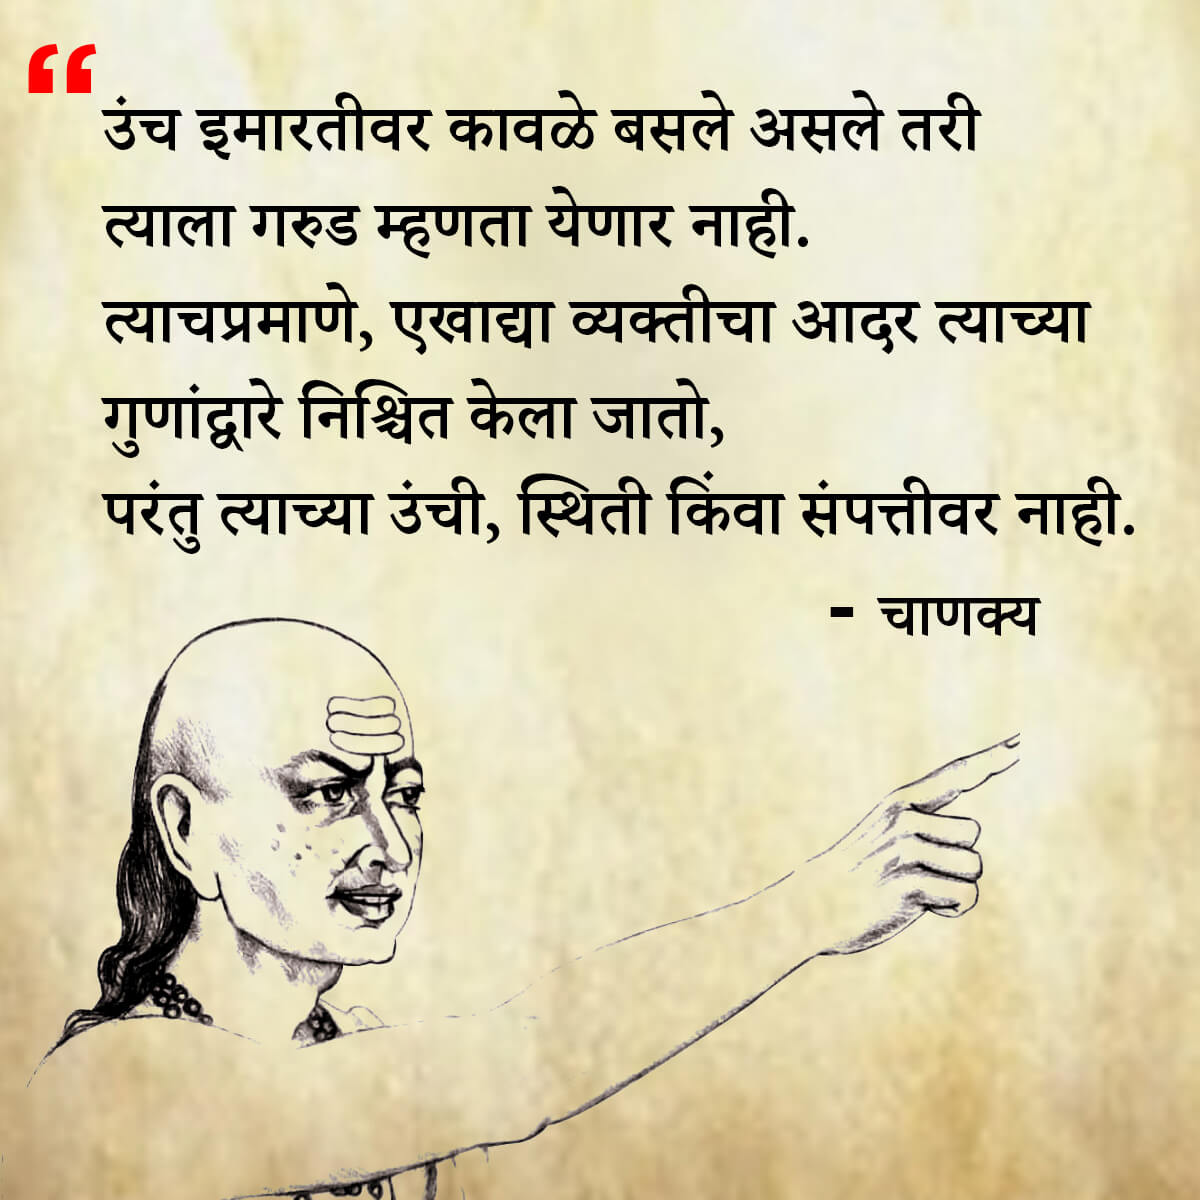 “
उंच इमारतीवर कावळे बसले असले तरी
त्याला गरुड म्हणता येणार नाही.
त्याचप्रमाणे, एखाद्या व्यक्तीचा आदर त्याच्या
गुणांद्वारे निश्चित केला जातो,
परंतु त्याच्या उंची, स्थिती किंवा संपत्तीवर नाही.
- चाणक्य